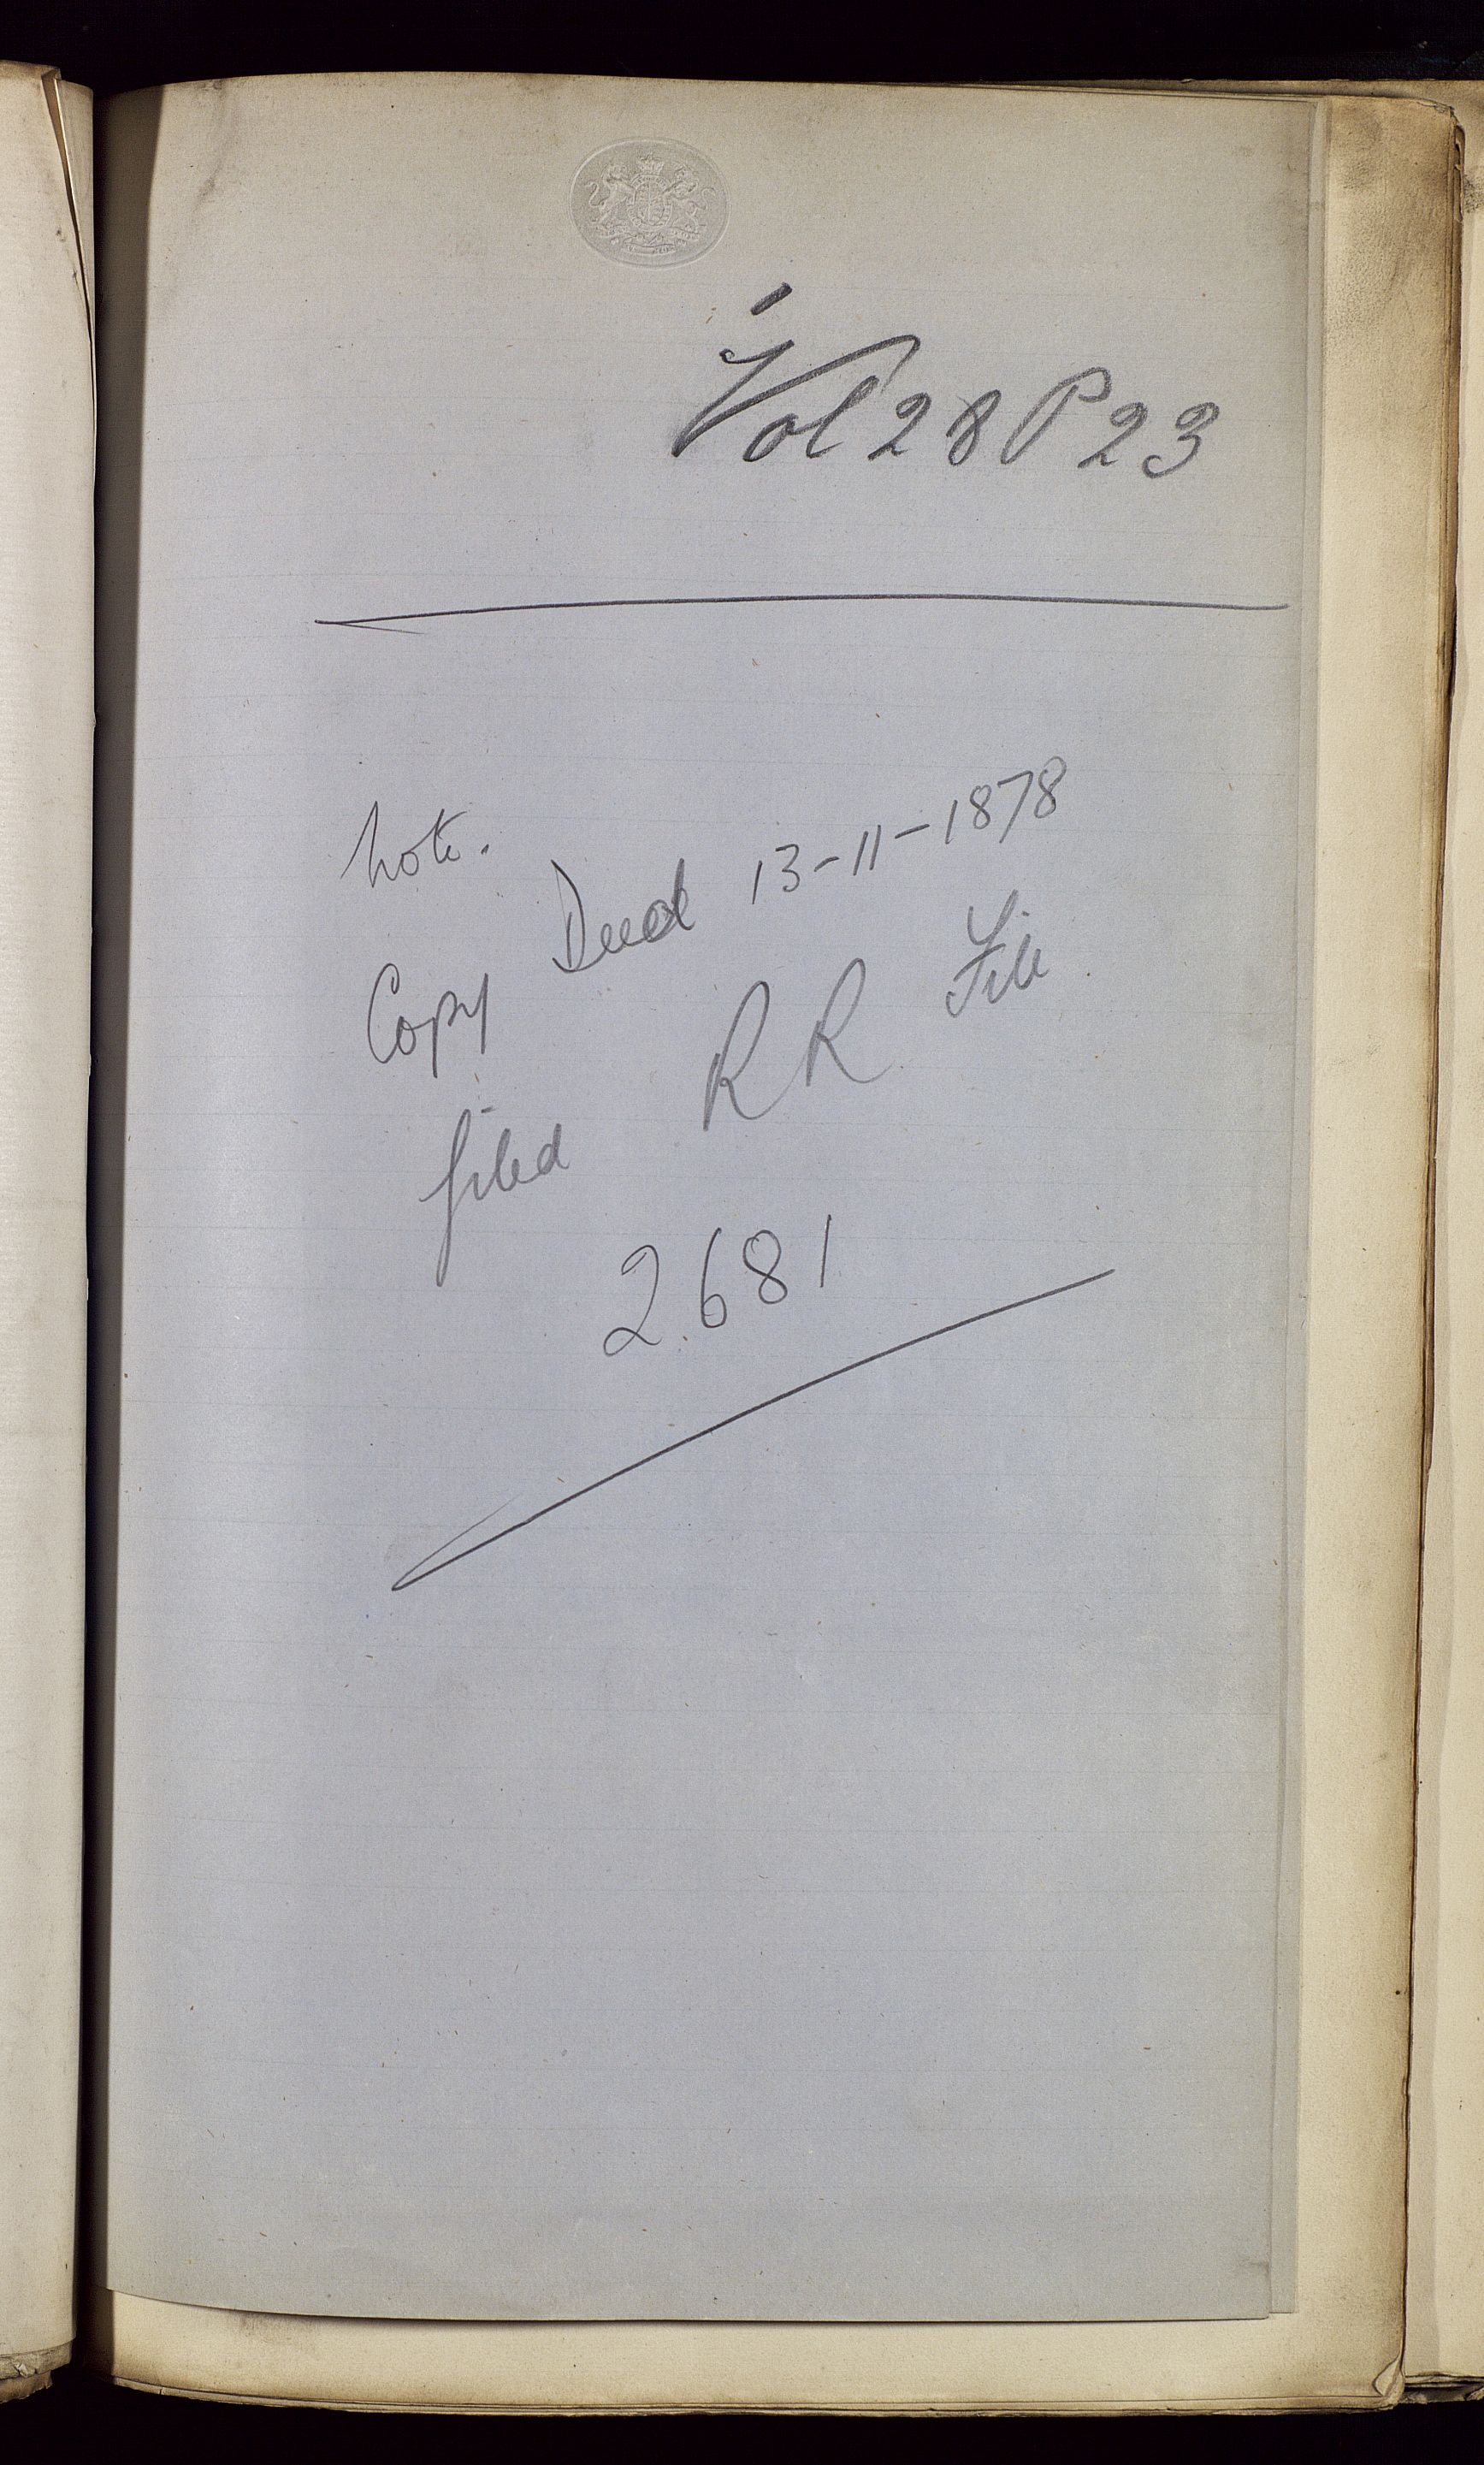 Vol 28 P 23
Note.
Copy Deed 13-11-1878
filed RR File
2681